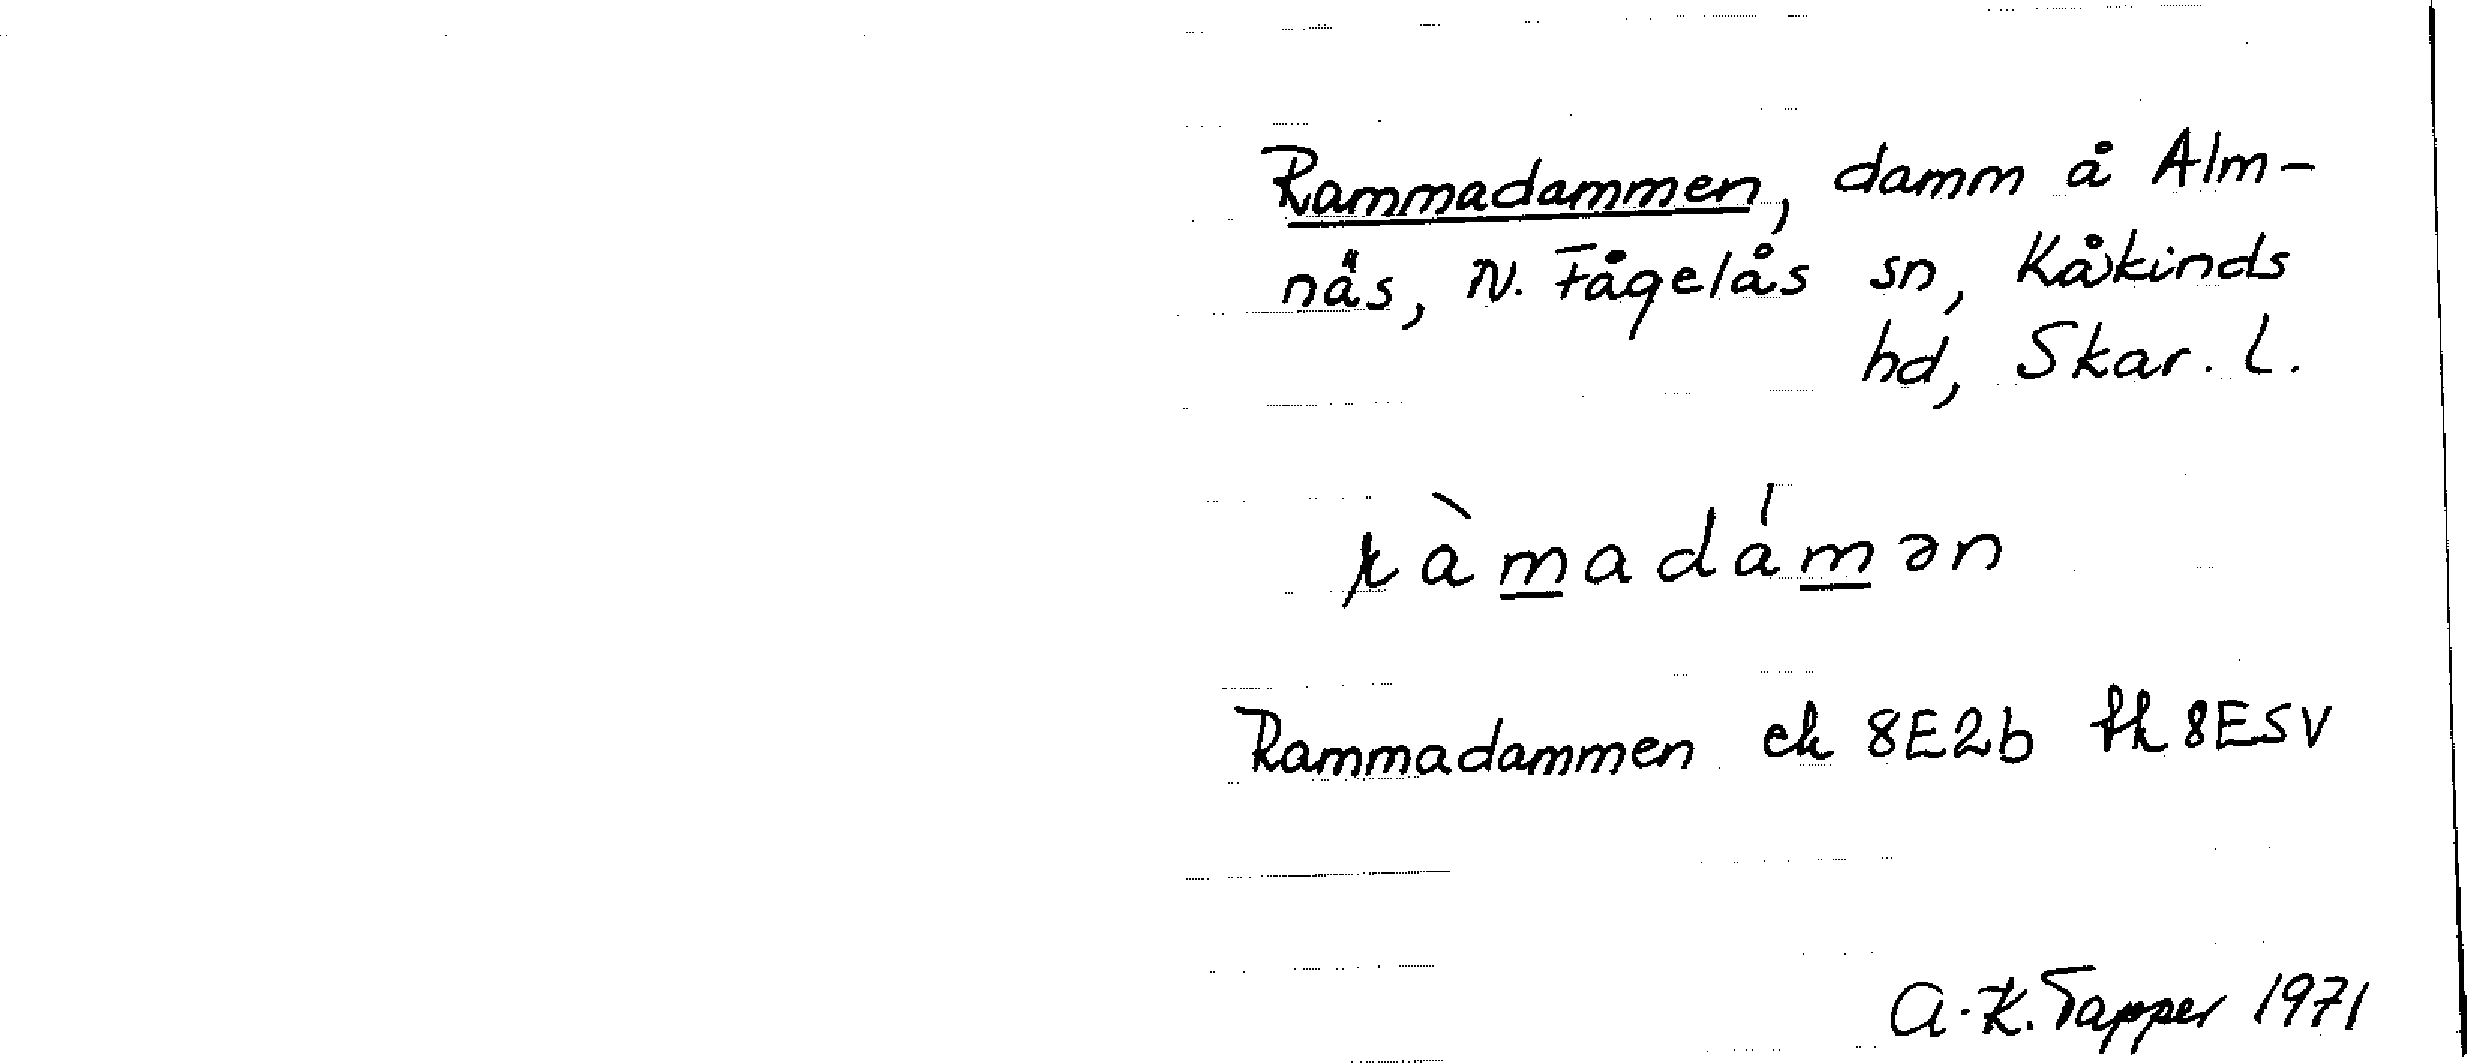 Rammadammen, damm å Alm-
näs, N. Fågelås sn, Kåkinds
hd, Skar. L.
ràmadámən
Rammadammen ek 8E2b tk 8ESV
A-K. Tapper 1971